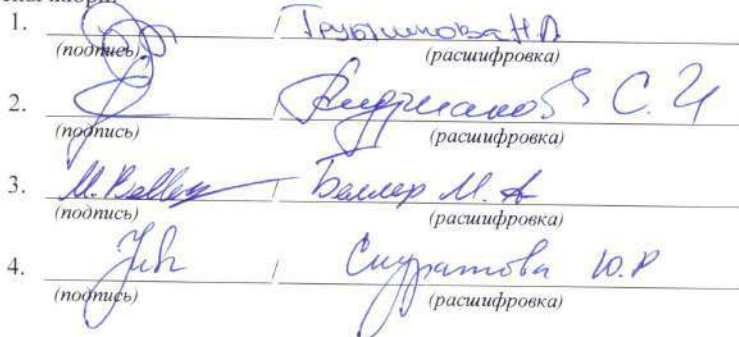 1. / Трубникова Н.П
(подпись) (расшифровка)
2. / Андрианов С. И
(подпись) (расшифровка)
3. M. Beller / Беллер М. А
(подпись) (расшифровка)
4. / Скуратова Ю.Р
(подпись) (расшифровка)